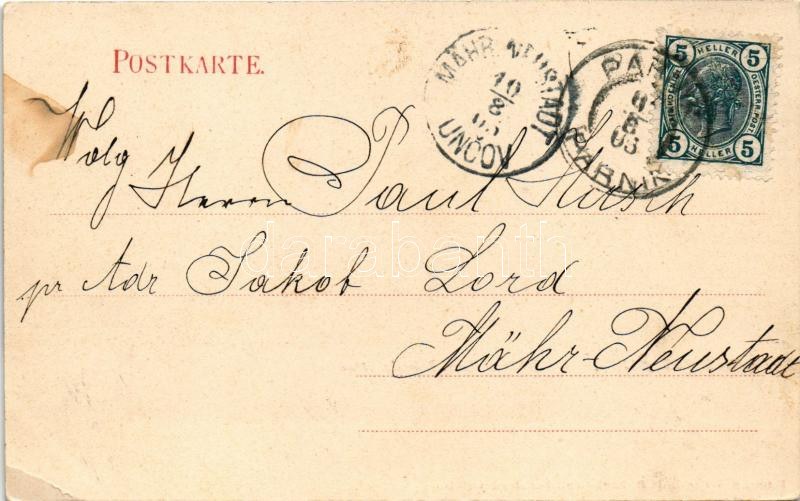 POSTKARTE.
MÄHR. NEUSTADT
10
8
03
UNČOV
PAR
8
03
PARNIK
5 HELLER 5
OESTERR. POST
5 HELLER 5
Wolg Herrn Paul Hirsch
darabanth
pr Adr Jakob Lord
Mähr-Neustadt